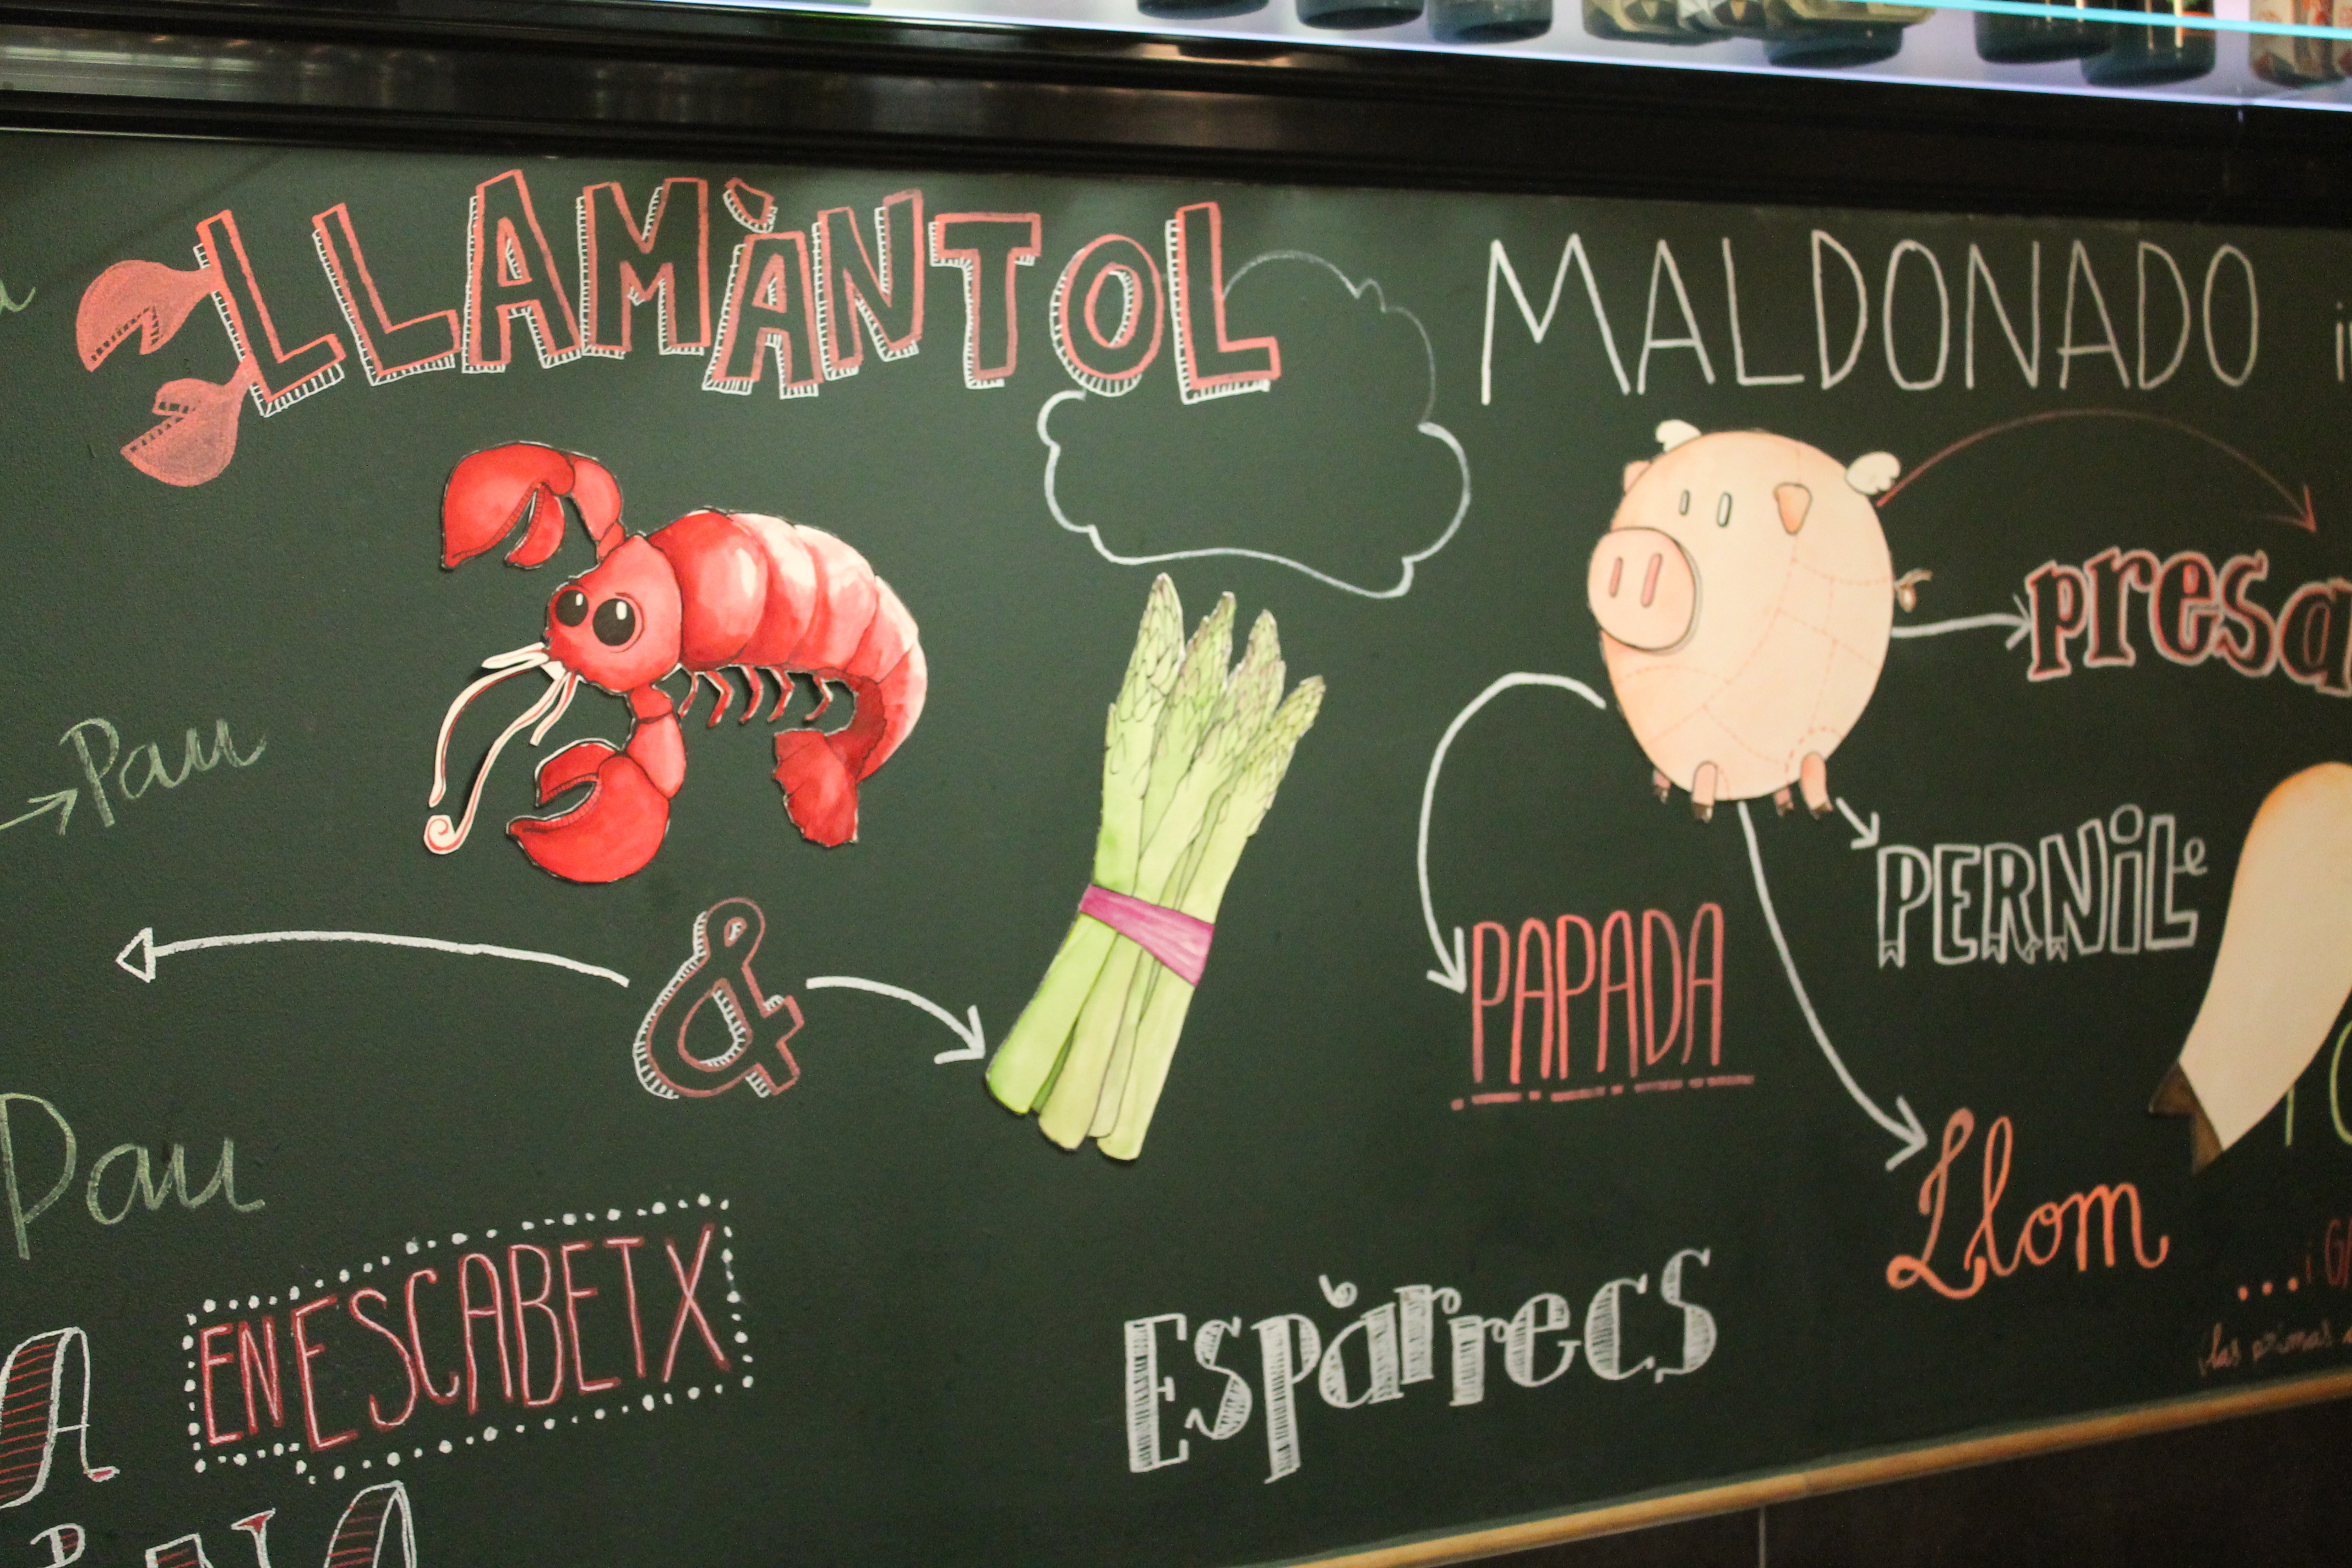 LLAMÀNTOL
MALDONADO
presa
Pau
PERNIL
&
PAPADA
Pau
Llom
EN ESCABETX
Espàrrecs